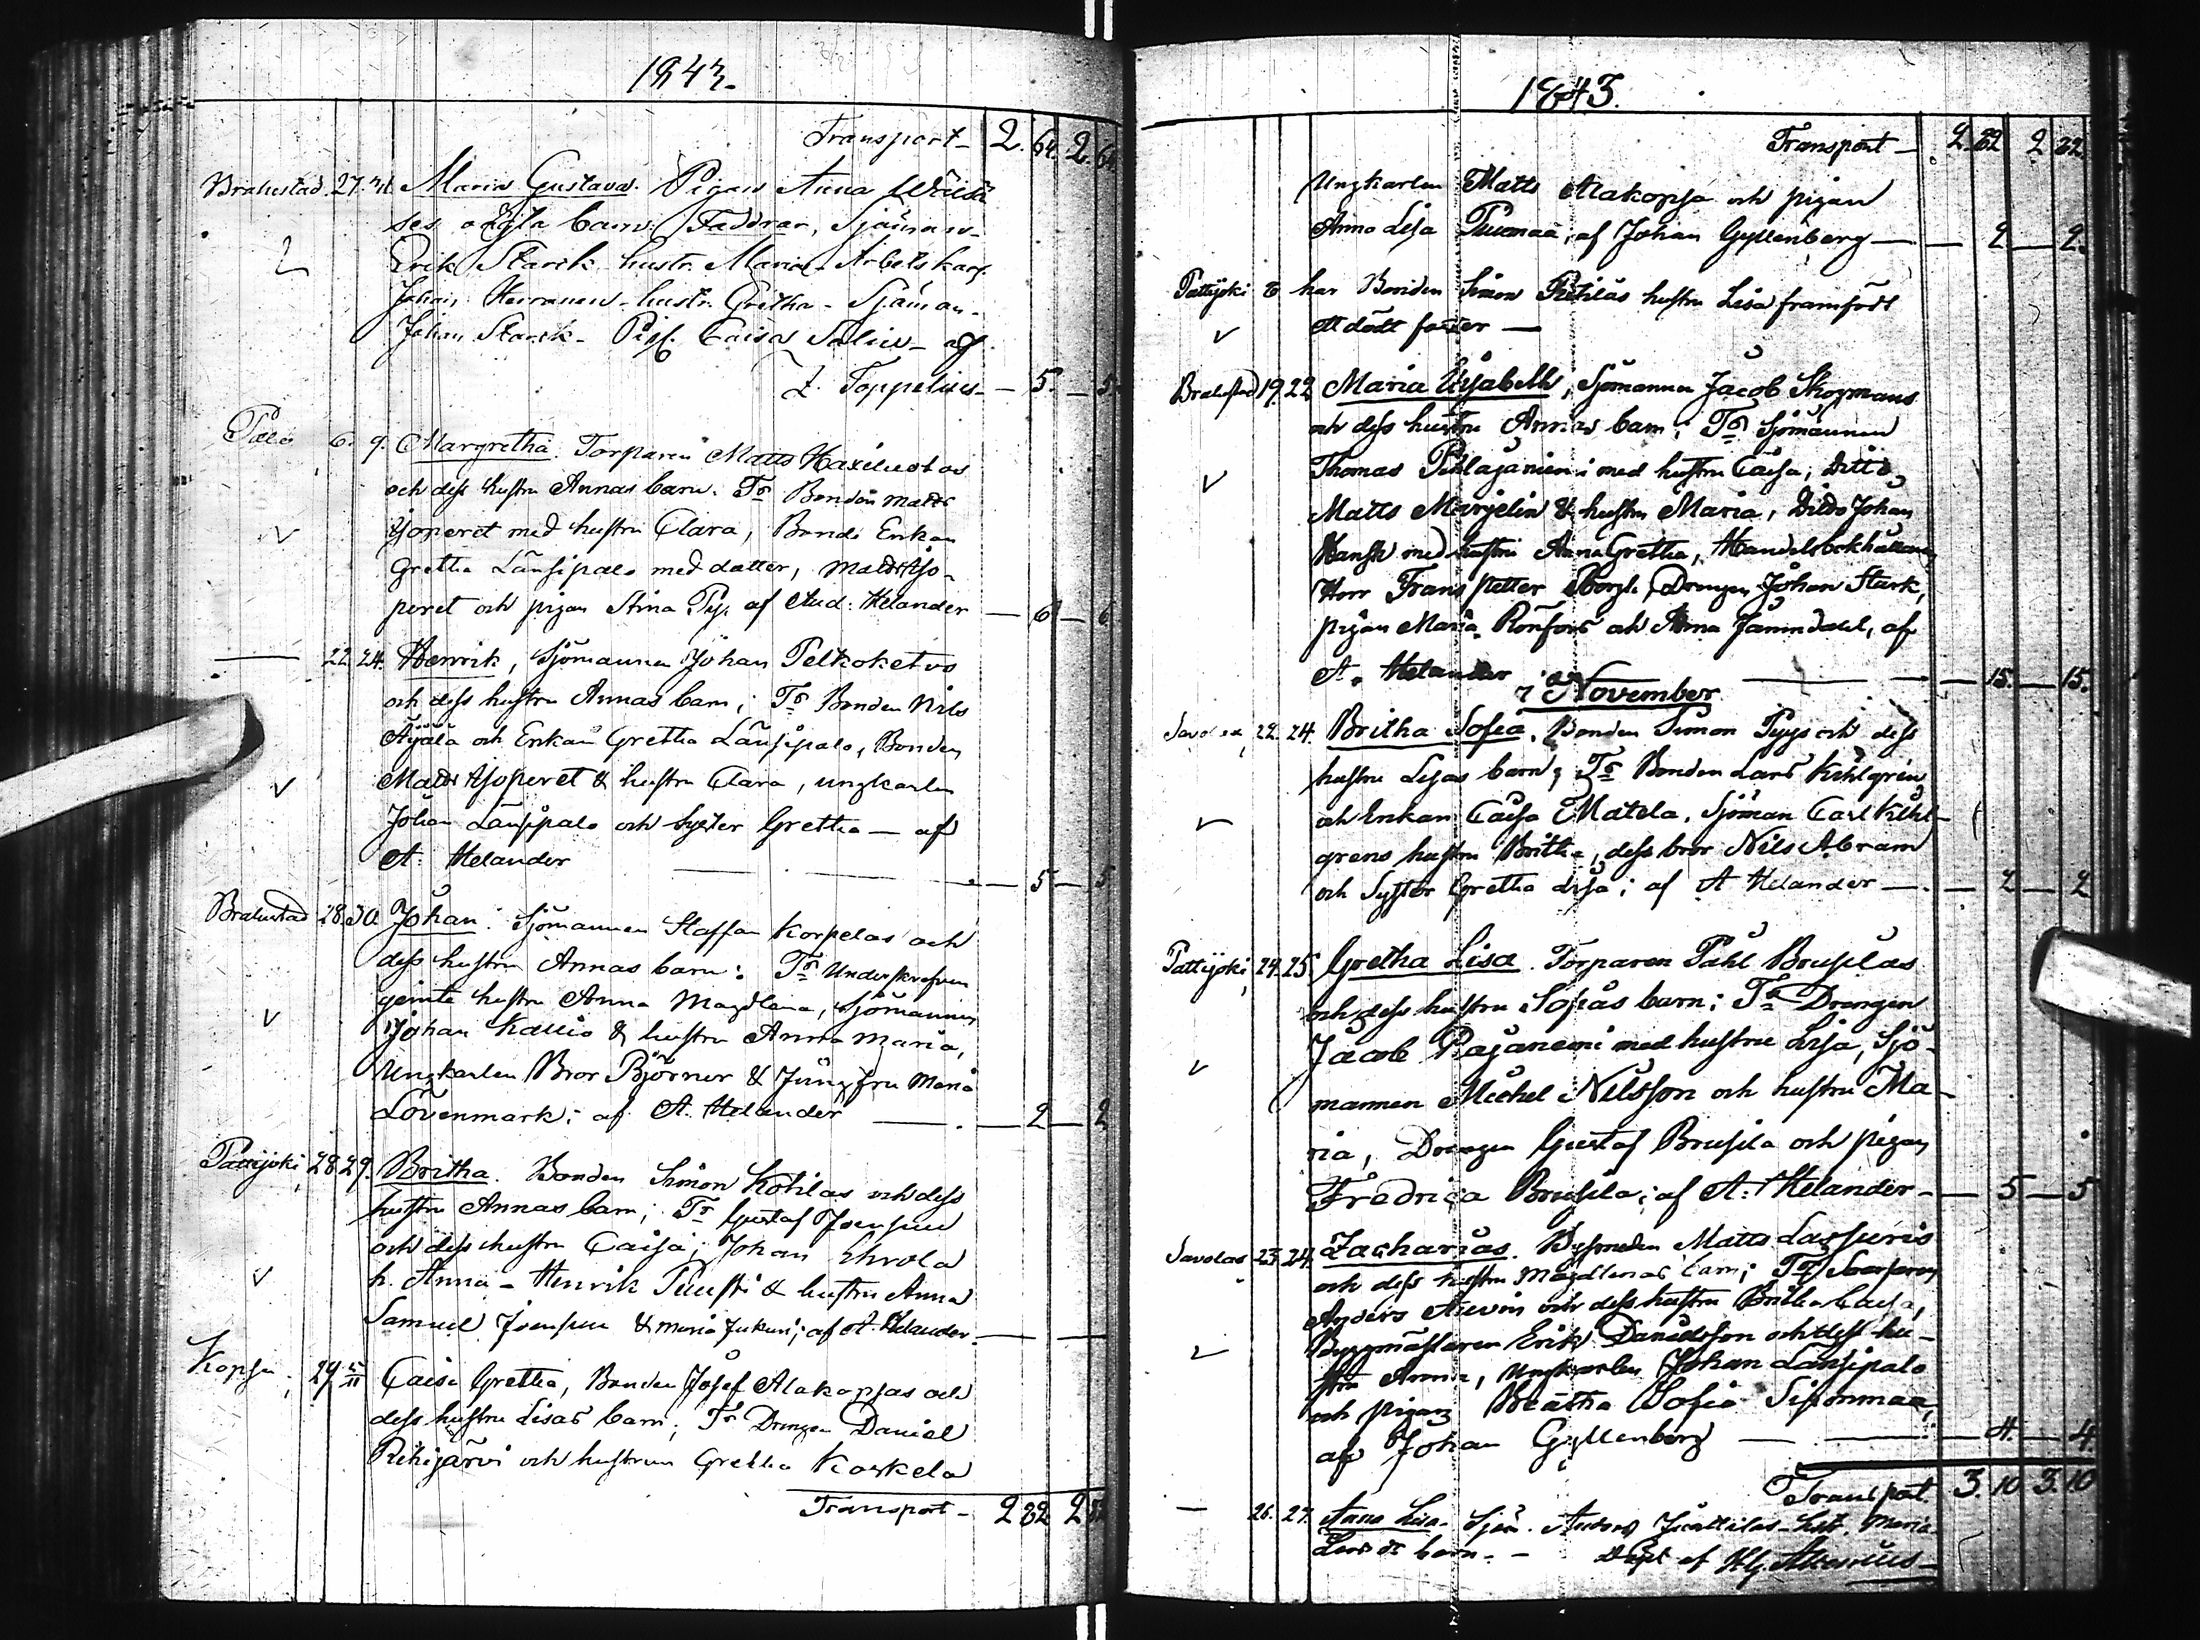 1843.
Transport - 2. 64. 2. 64
Brahestad 27. 31. Maria Gustava. Pigan Anna
ses oägta barn. Faddrar, Sjöman
Erik Starck hustr. Maria. Arbetskarl.
Johan hustr. Gretha - Sjöman.
Johan Starck - Pig. Caisa Salin - af
Z. Toppelius - 5. 5.
Palo 6. 9. Margretha. Torparen Matts
och dess hustru Annas barn. Tr Bonden Matts
Tjoperet med hustru Clara, Bonde Enkan
Gretha Länsipalo med dotter, Matts Tjo-
peret och pigan Stina Pyy. af And: Helander - 6 - 6
22. 24. Henrik, Sjömannen Johan Pelkoketos
och dess hustru Annas barn; Tr Bonden Nils
Äijälä och Enkan Gretha Länsipalo, Bonden
Matts Tjoperet & hustru Clara, ungkarlen
Johan Länsipalo och Syster Gretha - af
A. Helander - 5 - 5
Brahestad 28. 30 Johan. Sjömannen Staffan Korpelas och
dess hustru Annas barn: Tr Underskrefven
jemte hustru Anna Magdlena, Sjömannen
Johan Kallio & hustru Anna Maria,
Ungkarlen Bror Björner & Jungfru Maria
Lövenmark; af A. Helander - 2 - 2
Pattijoki 28 29. Britha. Bonden Simon Kotilas och dess
hustru Annas barn; Tr Gustaf Joensuu
och dess hustru Caisa; Johan Ehrola
h. Anna - Henrik Puusti & hustru Anna
Samuel Joensuu & Maria Jukuri; af A. Helander
Kopsa 29 5/11 Caisa Gretha, Bonden Josef Alakopsas och
dess hustru Lisas barn; Tr Drengen Daniel
Rihijärvi och hustrun Gretha Koskela
Transport - 2 82 2 82
1843.
Transport - 2. 82 2 82.
Ungkarlen Matts Alakopsa och pigan
Anna Lisa Piuomaa, af Johan Gyllenberg - 2 - 2.
Pattijoki 6 har Bonden Simon hustru Lisa framfödt
ett dödt foster -
Brahestad 19. 22 Maria Lisabeth, Sjömannen Jacob Skogmans
och dess hustru Annas barn; Tr Sjömannen
Thomas Pihlajaniemi med hustru Caisa, Ditto
Matts Marjelin & hustru Maria, Ditto Johan
Hansk med hustru Anna Gretha, Handelsbokhållaren
Herr Frans Petter Borg, Drengen Johan Stark,
pigan Maria Rönfors och Anna Jamndahl, af
A. Helander - 15. - 15.
November
Savolax 22. 24. Britha Sofia, Bonden Simon Pyys och dess
hustru Lisas barn; Tr Bonden Lars Kihlgren
och Enkan Caisa Matela, Sjöman Carl Kihl-
grens hustru Britha, dess bror Nils Abram
och Syster Gretha Lisa; af A Helander - 2 - 2
Pattijoki 24. 25 Gretha Lisa. Torparen Påhl Brusilas
och dess hustru Sofias barn; Tr Drengen
Jacob Pajaniemi med hustru Lisa, Sjö-
mannen Michel Nilsson och hustru Ma-
ria, Drengen Gustaf Brusila och pigan
Fredrica Brusila; af A: Helander - 5 - 5
Savolax 23. 24. Zacharias. Matts Lassuris
och dess hustru Magdlenas barn; Tr
Anders och dess hustru Britha Caisa,
Byggmästaren Erik Danielsson och dess hu-
stru Anna, Ungkarlen Johan Länsipalo
och pigan Beatha Sofia Siponmaa,
af Johan Gyllenberg - 4. - 4.
Transport 3. 10 3. 10
26. 27. Anna Lisa. Sjöm. Anders Junttilas hust. Maria
barn. - Döpt af